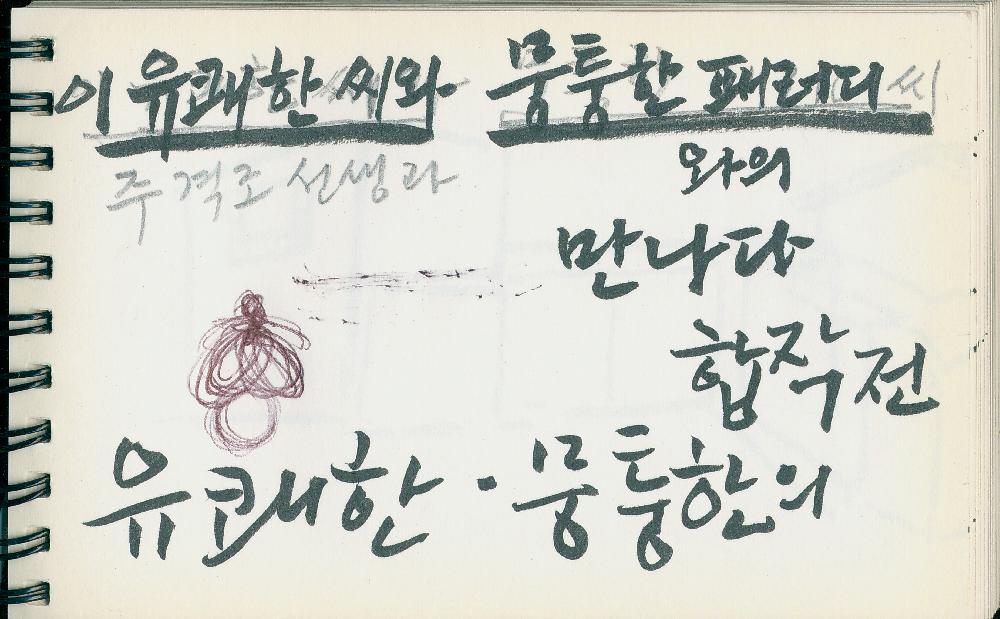 이 유쾌한 씨와 뭉퉁한 패러디 씨
주격조 선생과
와의
만나다
합작전
유쾌한 · 뭉퉁한의